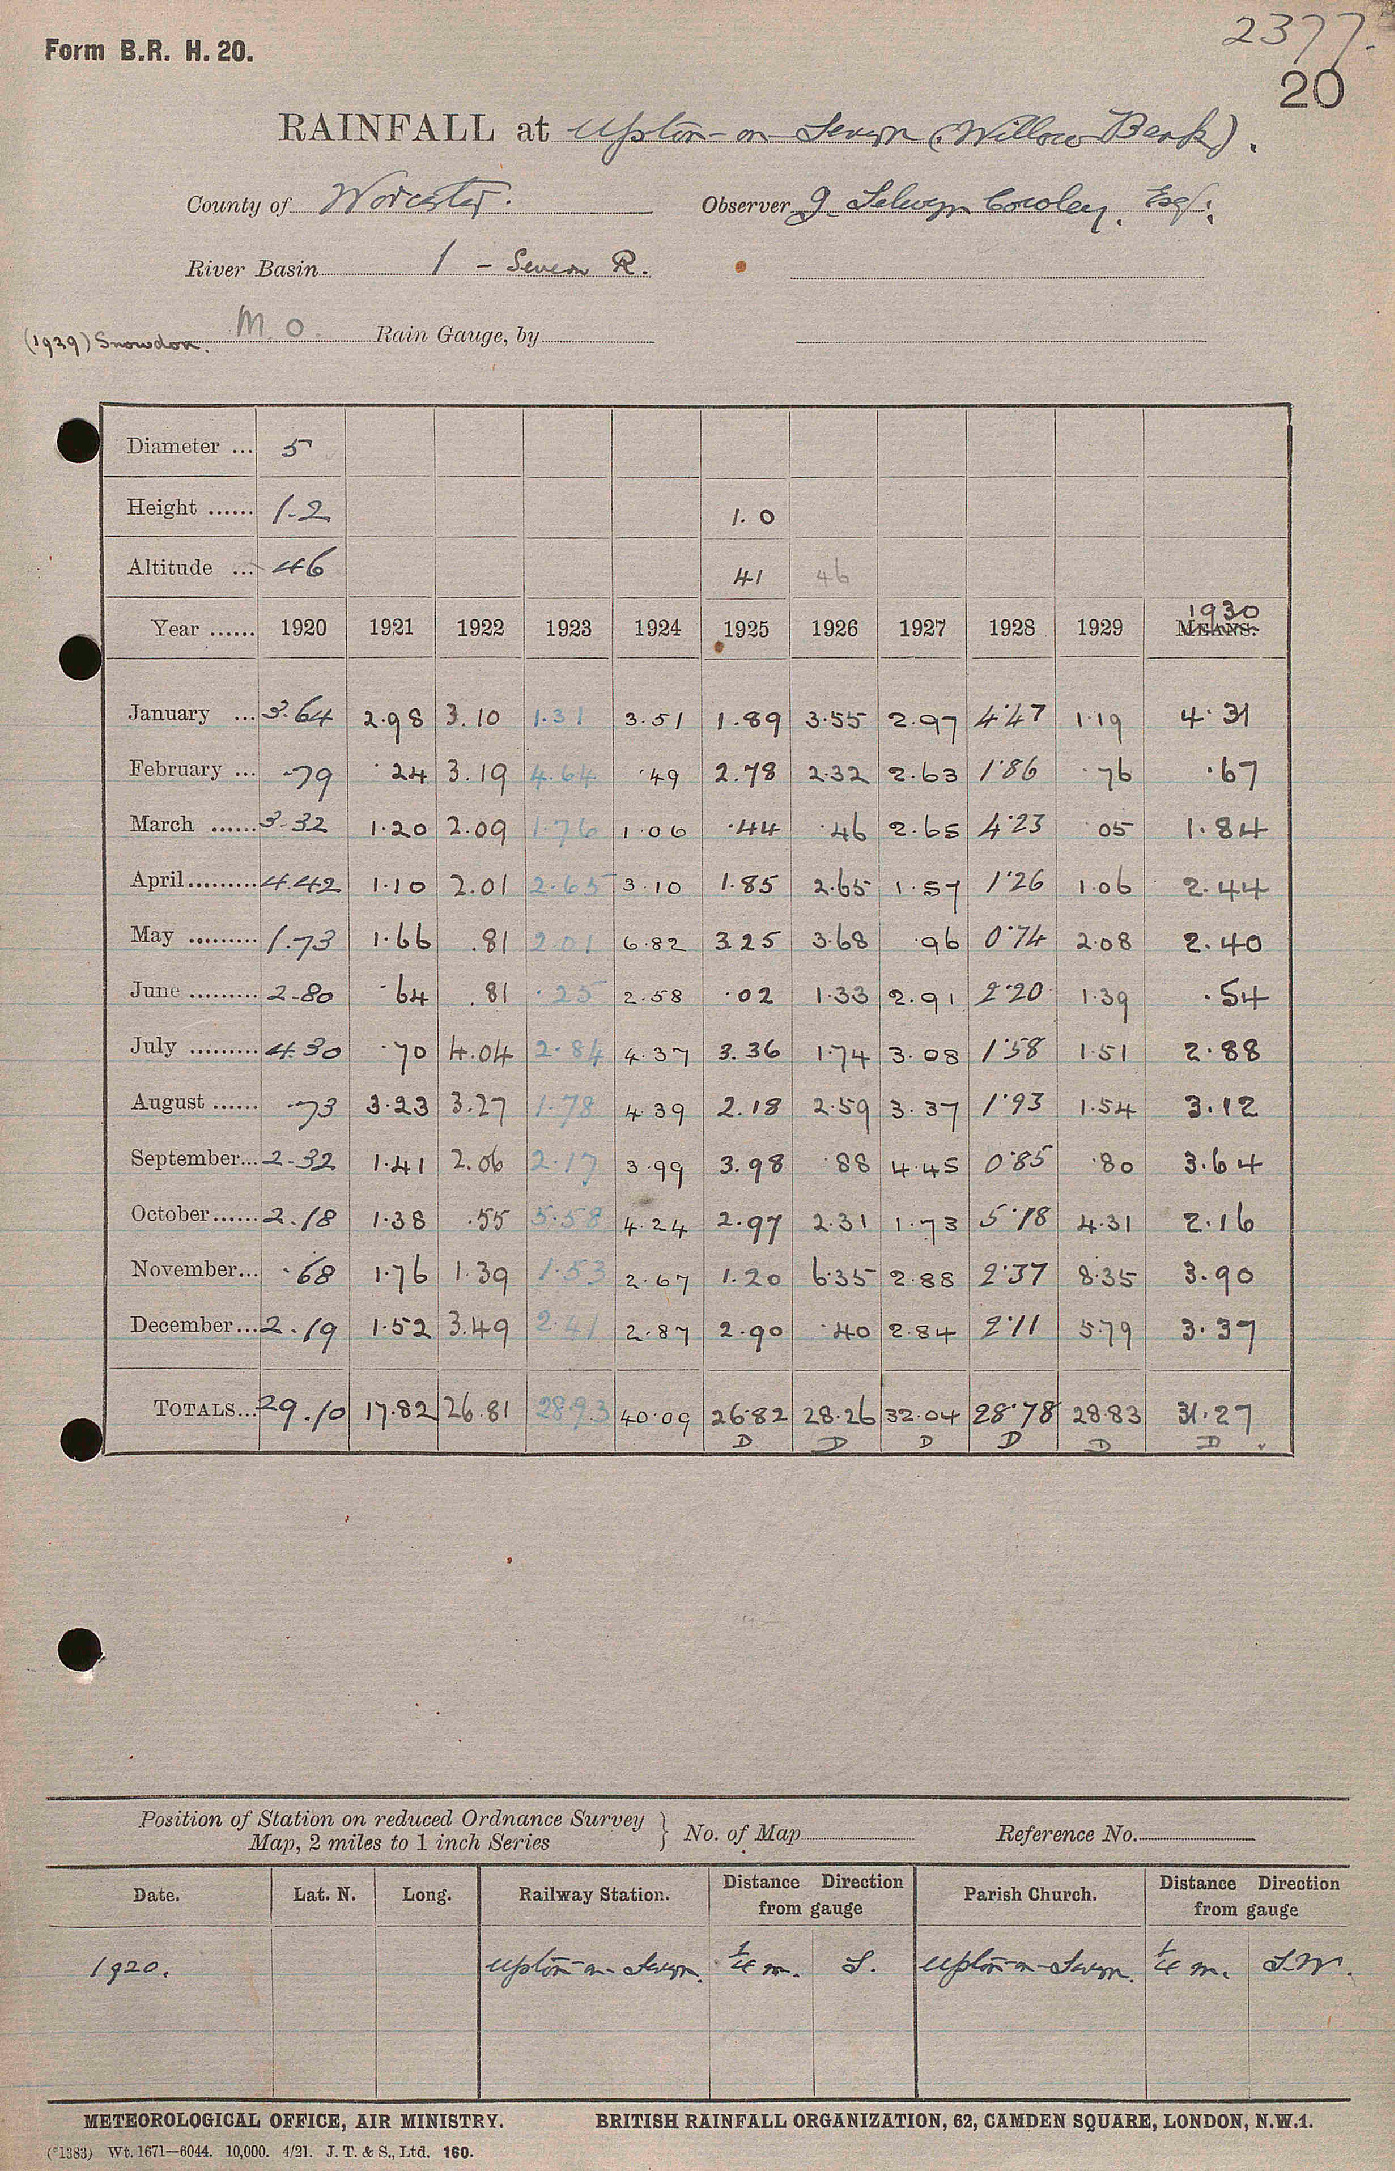 Form B.R. H. 20.
2377.
20
RAINFALL at Upton-on-Severn (Willow Bank).
County of Worcester. Observer J. Selwyn Cowley, Esq.
River Basin 1 - Severn R.
(1929) Snowdon. M.O. Rain Gauge, by
Diameter ... 5
Height ...... 1.2 1.0
Altitude ... 46 41 46
Year ...... 1920 1921 1922 1923 1924 1925 1926 1927 1928 1929 MEANS. 1930
January ... 3.64 2.98 3.10 1.31 3.51 1.89 3.55 2.97 4.47 1.19 4.31
February ... .79 .24 3.19 4.64 .49 2.78 2.32 2.63 1.86 .76 .67
March ...... 3.32 1.20 2.09 1.76 1.06 .44 .46 2.65 4.23 .05 1.84
April......... 4.42 1.10 2.01 2.65 3.10 1.85 2.65 1.57 1.26 1.06 2.44
May ......... 1.73 1.66 .81 2.01 6.82 3.25 3.68 .96 0.74 2.08 2.40
June ......... 2.80 .64 .81 .25 2.58 .02 1.33 2.91 2.20 1.39 .54
July ......... 4.30 .70 4.04 2.84 4.37 3.36 1.74 3.08 1.58 1.51 2.88
August ...... .73 3.23 3.27 1.78 4.39 2.18 2.59 3.37 1.93 1.54 3.12
September... 2.32 1.41 2.06 2.17 3.99 3.98 .88 4.45 0.85 .80 3.64
October...... 2.18 1.38 .55 5.58 4.24 2.97 2.31 1.73 5.18 4.31 2.16
November... .68 1.76 1.39 1.53 2.67 1.20 6.35 2.88 2.37 8.35 3.90
December... 2.19 1.52 3.49 2.41 2.87 2.90 .40 2.84 2.11 5.79 3.37
TOTALS... 29.10 17.82 26.81 28.93 40.09 26.82 28.26 32.04 28.78 28.83 31.27
D D D D D D
Position of Station on reduced Ordnance Survey
Map, 2 miles to 1 inch Series } No. of Map Reference No.
Date. Lat. N. Long. Railway Station. Distance Direction from gauge Parish Church. Distance Direction from gauge
1920. Upton-on-Severn. 1/4 m. S. Upton-on-Severn. 1/4 m. S.W.
METEOROLOGICAL OFFICE, AIR MINISTRY. BRITISH RAINFALL ORGANIZATION, 62, CAMDEN SQUARE, LONDON, N.W.1.
(*1383) Wt. 1671—6044. 10,000. 4/21. J. T. & S., Ltd. 160.